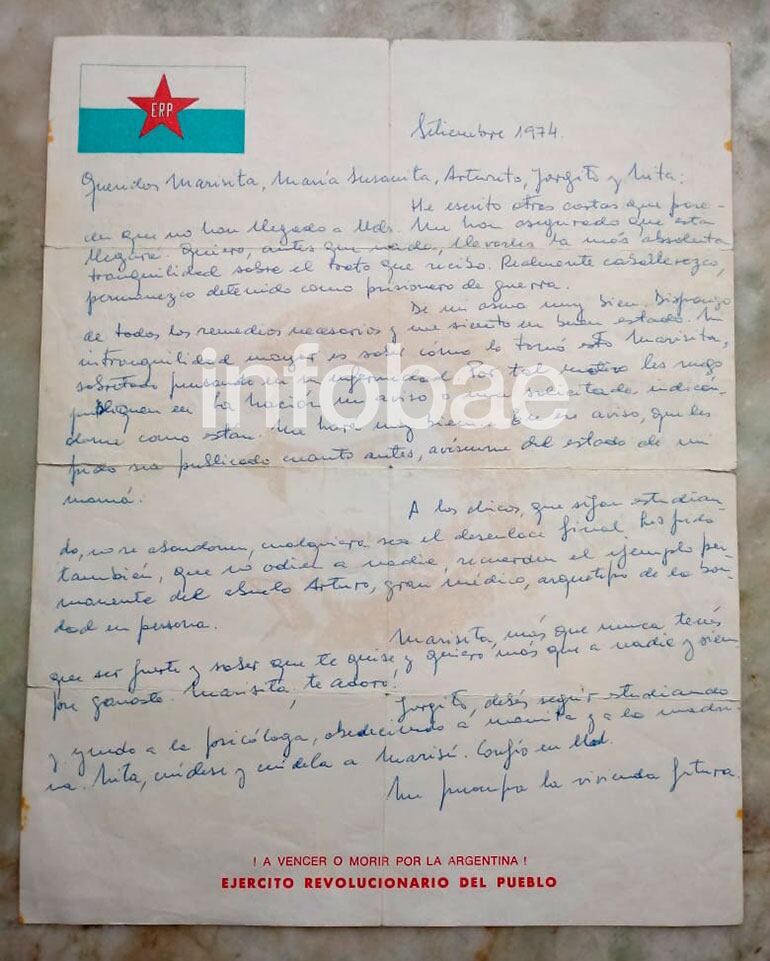 ERP
Setiembre 1974.
Queridos Marisita, María Susanita, Arturito, Jorgito y Nita:
He escrito otras cartas que pare-
cen que no han llegado a Uds. Me han asegurado que esta
llegará. Quiero, antes que nada, llevarles la más absoluta
tranquilidad sobre el trato que recibo. Realmente caballerezco,
permanezco detenido como prisionero de guerra.
De mi asma muy bien. Dispongo
de todos los remedios necesarios y me siento en buen estado. Mi
intranquilidad mayor es saber cómo lo tomó esto Marisita,
sobretodo pensando en su enfermedad. Por tal motivo les ruego
publiquen en La Nación un aviso o una solicitada indicán-
dome como están. Me hará muy bien. En ese aviso, que les
pido sea publicado cuanto antes, avísenme del estado de mi
mamá.
A los chicos, que sigan estudian-
do, no se abandonen, cualquiera sea el desenlace final. Les pido
también, que no odien a nadie, recuerden el ejemplo per-
manente del abuelo Arturo, gran médico, arquetipo de la bon-
dad en persona.
Marisita, más que nunca tenés
que ser fuerte y saber que te quise y quiero más que a nadie y siem-
pre ganaste. Marisita, te adoro!
Jorgito, debés seguir estudiando
y yendo a la psicóloga, obedeciendo a mamita y a la madri-
na. Nita, cuídese y cuídela a Marisú. Confío en Ud.
Me preocupa la vivienda futura.
infobae
! A VENCER O MORIR POR LA ARGENTINA !
EJERCITO REVOLUCIONARIO DEL PUEBLO